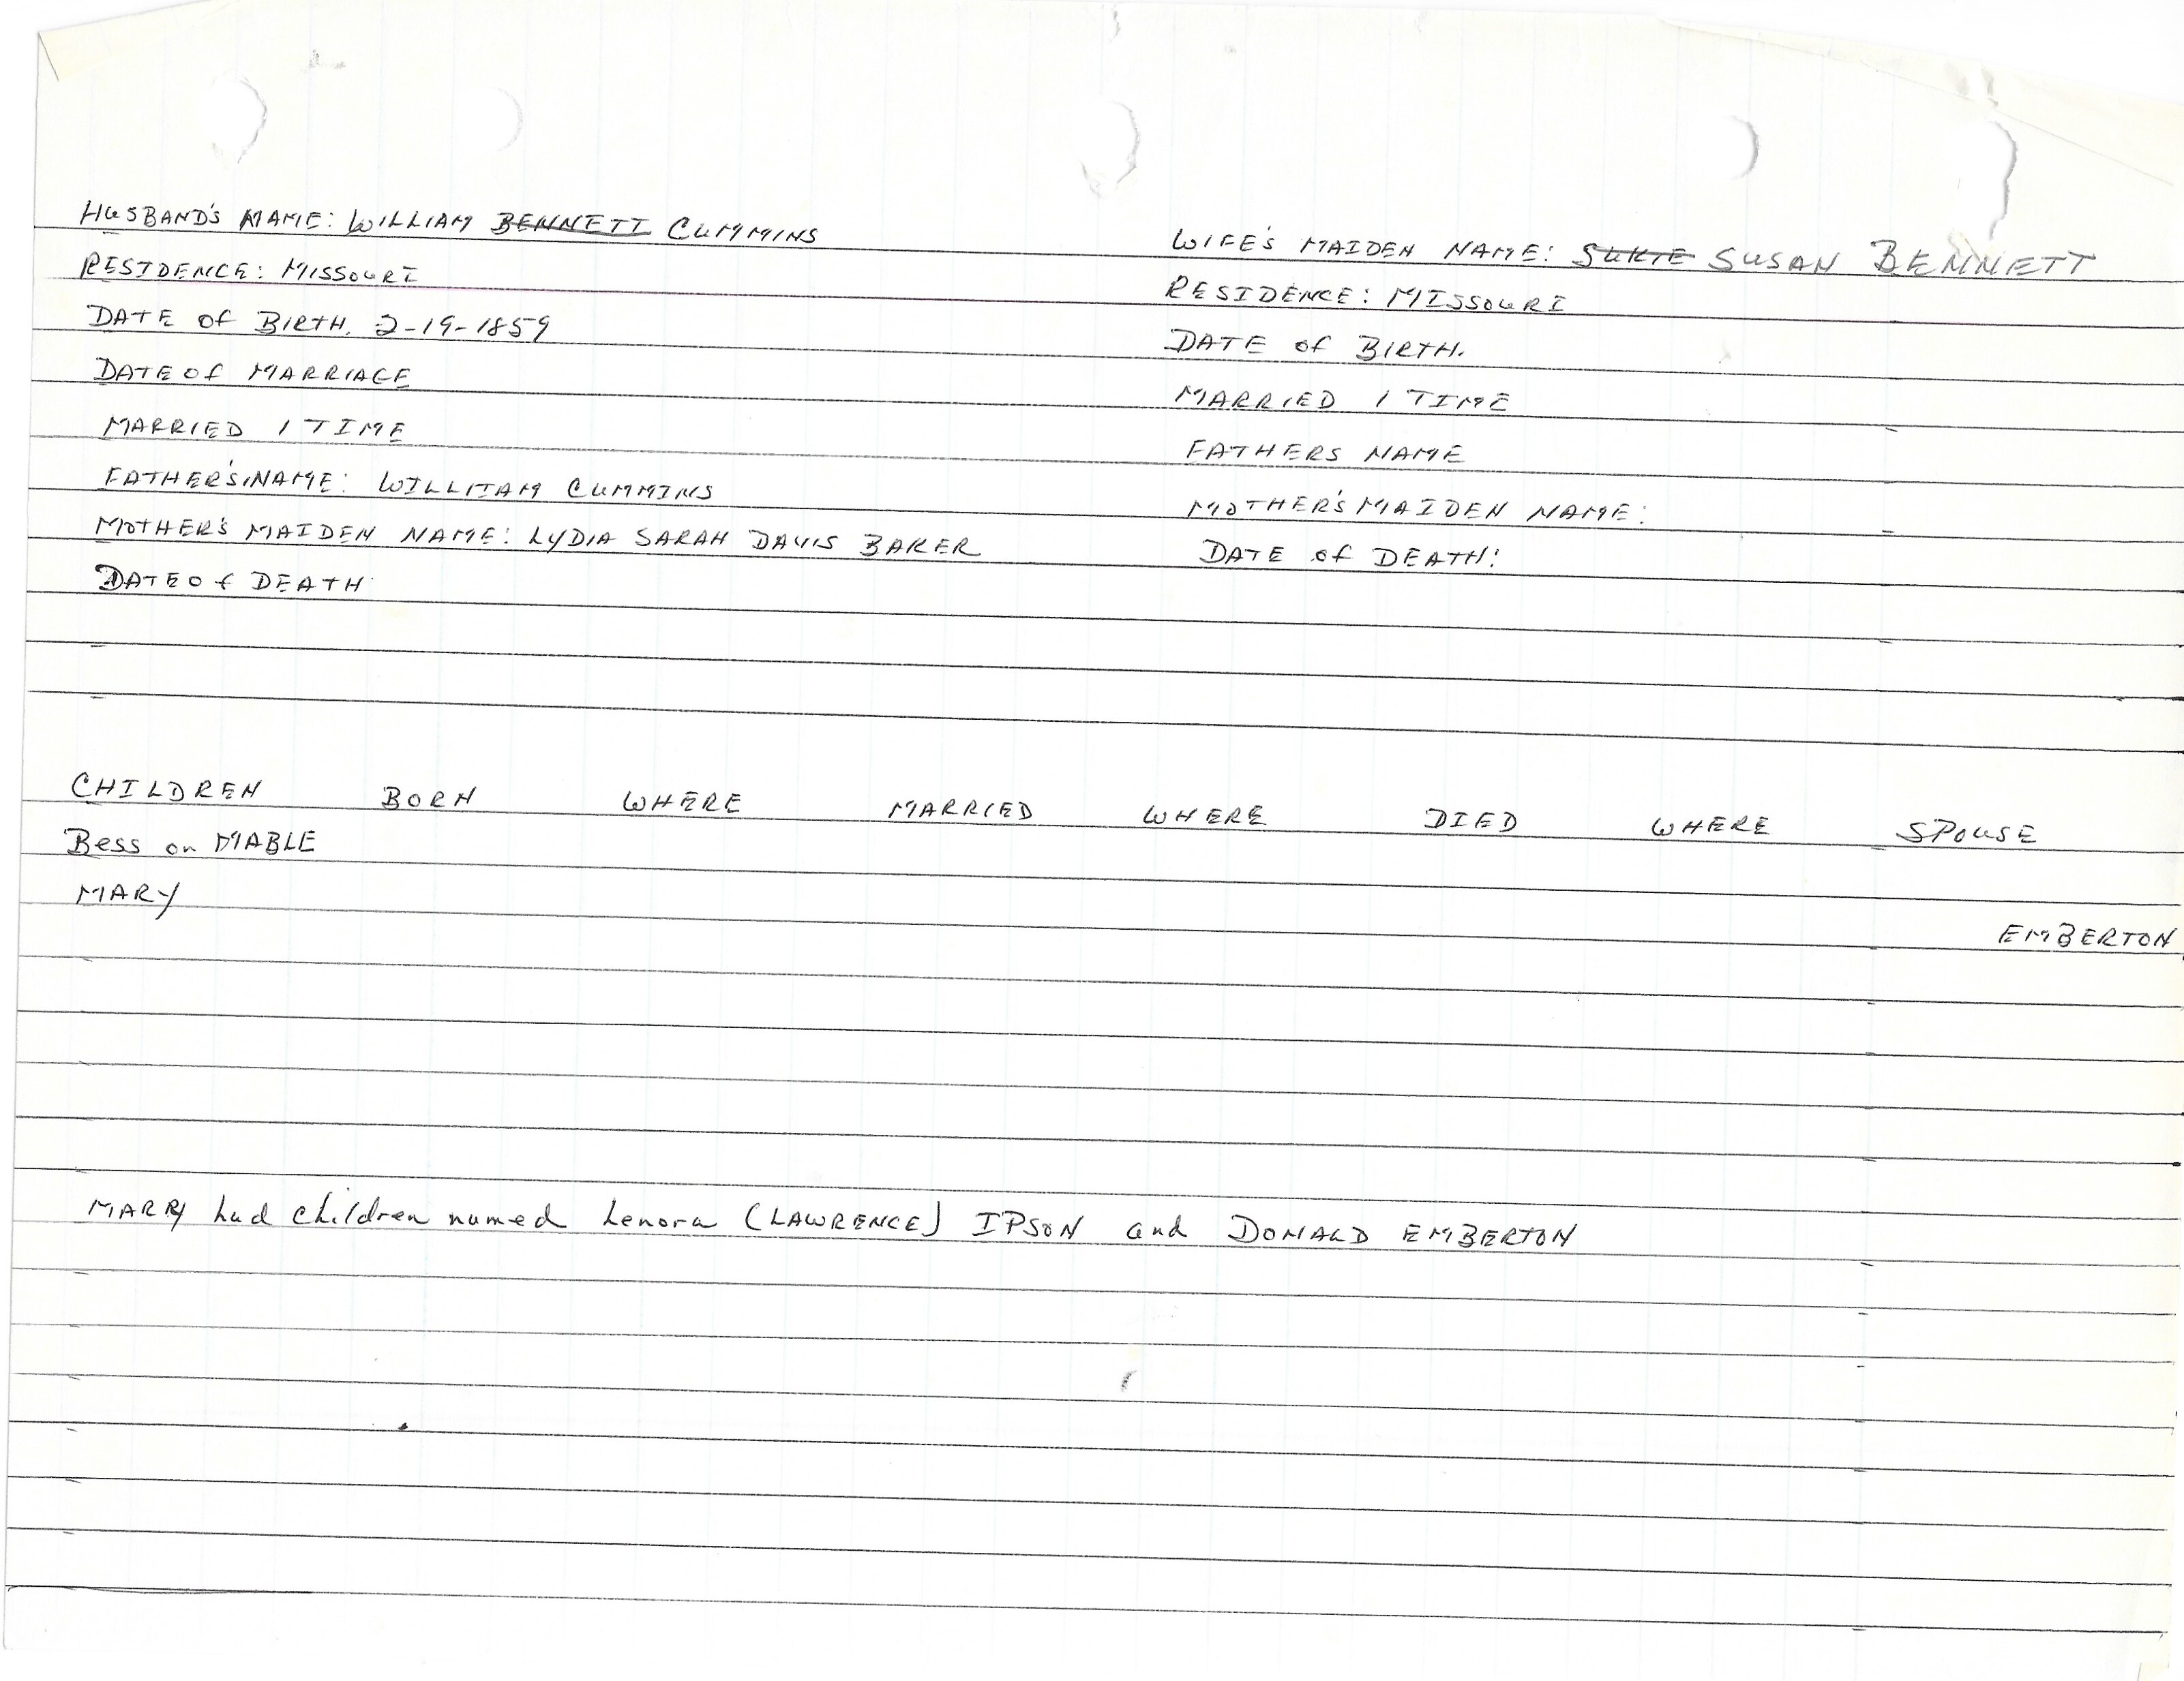 HUSBAND'S NAME: WILLIAM BENNETT CUMMINS
RESIDENCE: MISSOURI
DATE of BIRTH. 2-19-1859
DATE of MARRIAGE
MARRIED 1 TIME
FATHER'S NAME: WILLITAM CUMMINS
MOTHER'S MAIDEN NAME: LYDIA SARAH DAVIS BAKER
DATE of DEATH
WIFE'S MAIDEN NAME: SUKIE SUSAN BENNETT
RESIDENCE: MISSOURI
DATE of BIRTH.
MARRIED 1 TIME
FATHERS NAME
MOTHER'S MAIDEN NAME:
DATE of DEATH:
CHILDREN BORN WHERE MARRIED WHERE DIED WHERE SPOUSE
Bess or MABLE
MARY EMBERTON
MARRY had children named Lenora (LAWRENCE) IPSON and DONALD EMBERTON